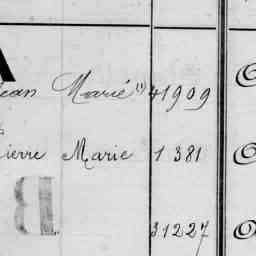 A
Jean Marie (1) 41909
Pierre Marie 1381
B
31227